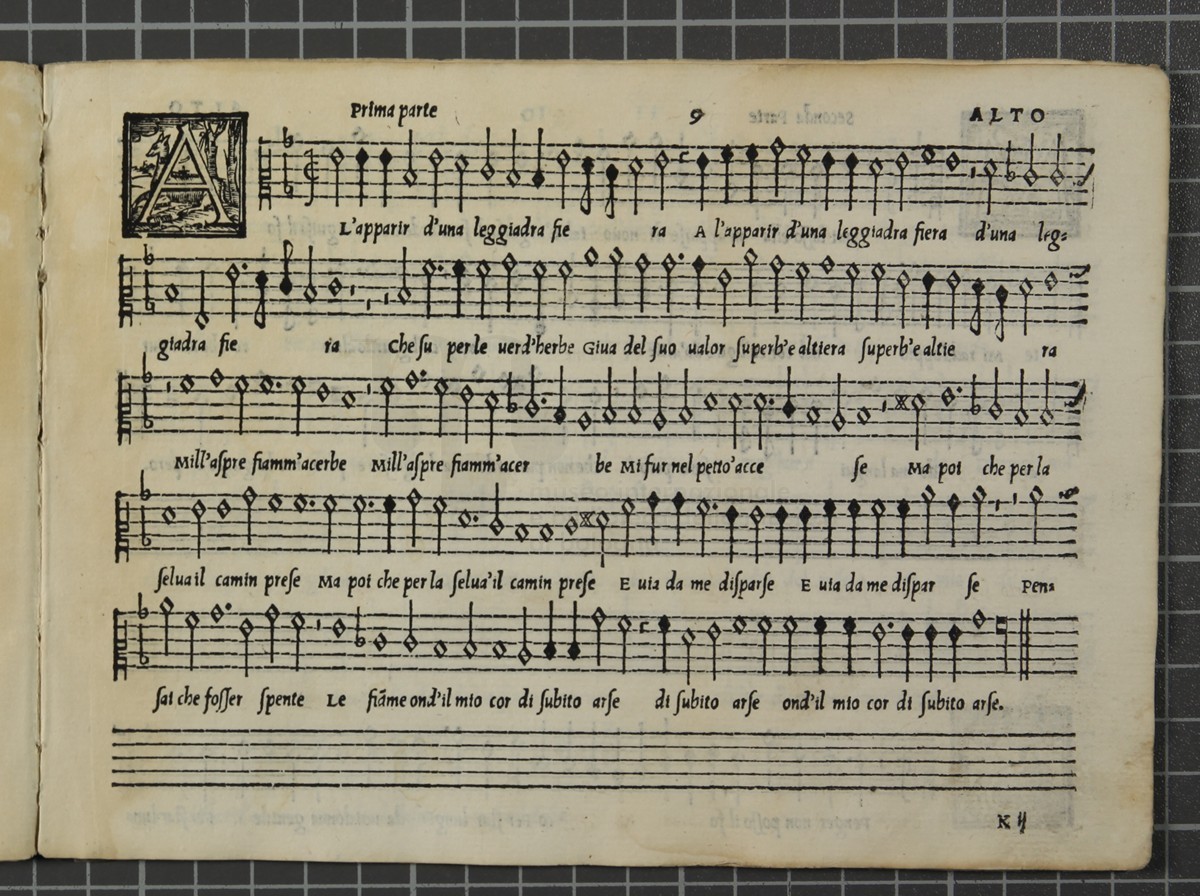 Prima parte 9 ALTO
A
L'apparir d'una leggiadra fie ra A l'apparir d'una leggiadra fiera d'una leg=
giadra fie ra Che ſu per le uerd'herbe Giua del ſuo ualor ſuperb'e altiera ſuperb'e altie ra
Mill'aſpre fiamm'acerbe Mill'aſpre fiamm'acer be Mi fur nel petto'acce ſe Ma poi che per la
ſelua il camin preſe Ma poi che per la ſelua'il camin preſe E uia da me diſparſe E uia da me diſpar ſe Pen=
ſai che foſſer ſpente Le fiãme ond'il mio cor di ſubito arſe di ſubito arſe ond'il mio cor di ſubito arſe.
K ij